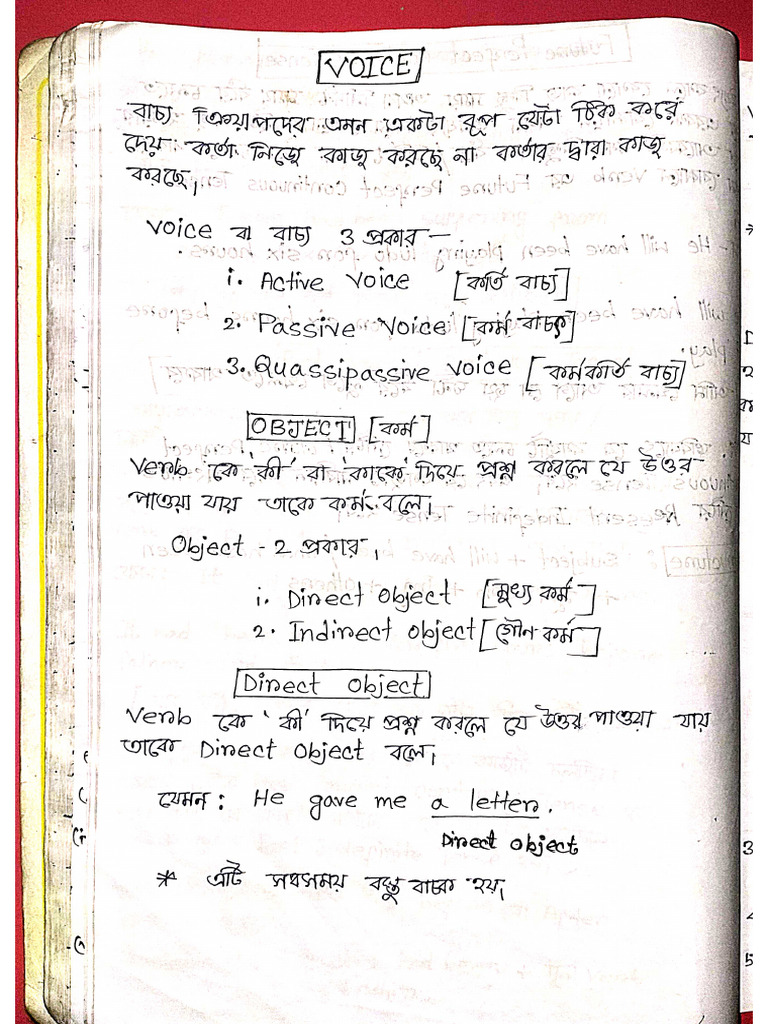 VOICE
বাচ্য ক্রিয়াপদের এমন একটা রূপ যেটা ঠিক করে
দেয় কর্তা নিজে কাজ করছে না কর্তার দ্বারা কাজ
করছে।
Voice বা বাচ্য 3 প্রকার —
i. Active Voice [কর্তি বাচ্য]
2. Passive Voice [কর্ম বাচ্য]
3. Quassipassive voice [কর্মকর্তি বাচ্য]
OBJECT [কর্ম]
Verb কে 'কী' বা 'কাকে' দিয়ে প্রশ্ন করলে যে উওর
পাওয়া যায় তাকে কর্ম বলে।
Object - 2 প্রকার।
i. Direct object [মুখ্য কর্ম]
2. Indirect object [গৌণ কর্ম]
Direct Object
Verb কে 'কী' দিয়ে প্রশ্ন করলে যে উওর পাওয়া যায়
তাকে Direct Object বলে।
যেমন : He gave me a letter.
Direct object
* এটি সবসময় বস্তু বাচক হয়।